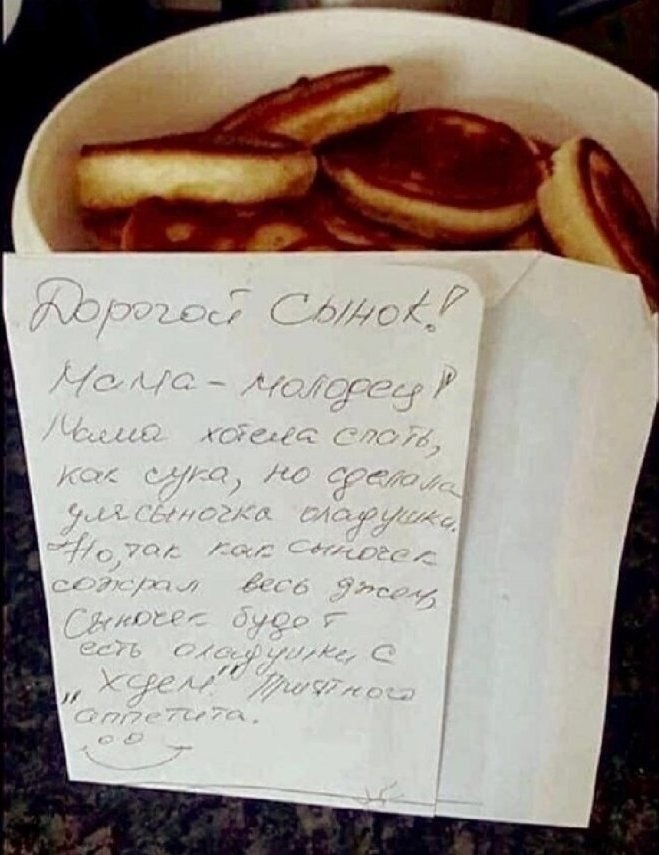 Дорогой Сынок!
Мама - молодец!
Мама хотела спать,
как сука, но сделала
для сыночка оладушки.
Но, так как сыночек
сожрал весь джем,
Сыночек будет
есть оладушки с
"хуем" Приятного
аппетита.